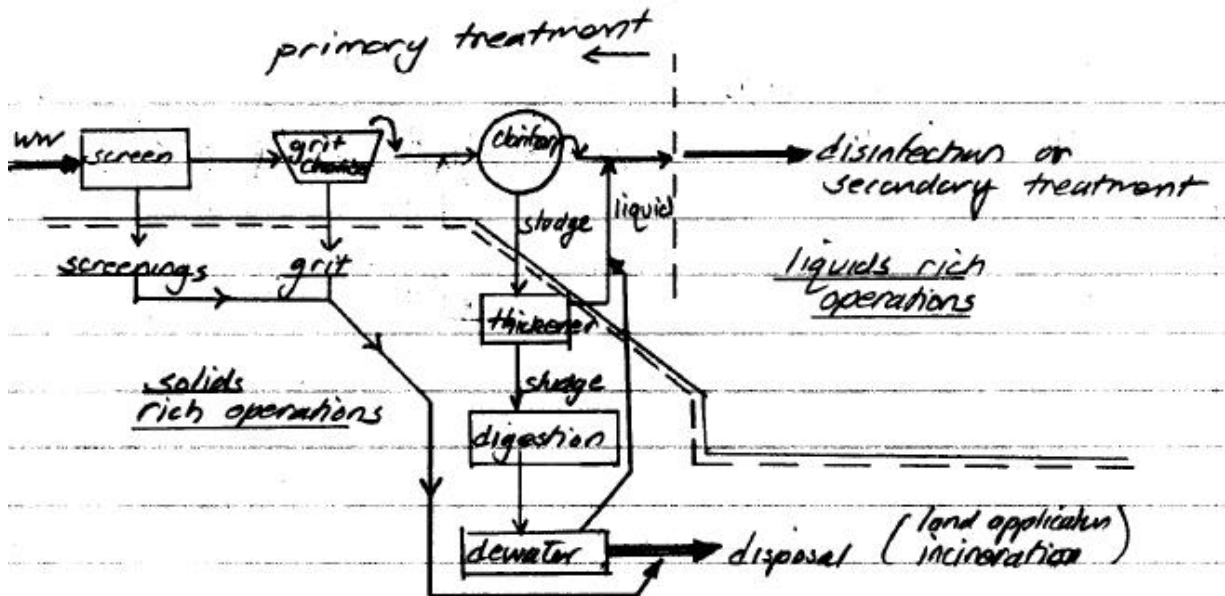 primary treatment
ww
screen
grit
chamber
clarifier
disinfection or
secondary treatment
sludge
liquid
screenings
grit
liquids rich
operations
thickener
solids
rich operations
sludge
digestion
dewater
disposal
(land application
incineration)